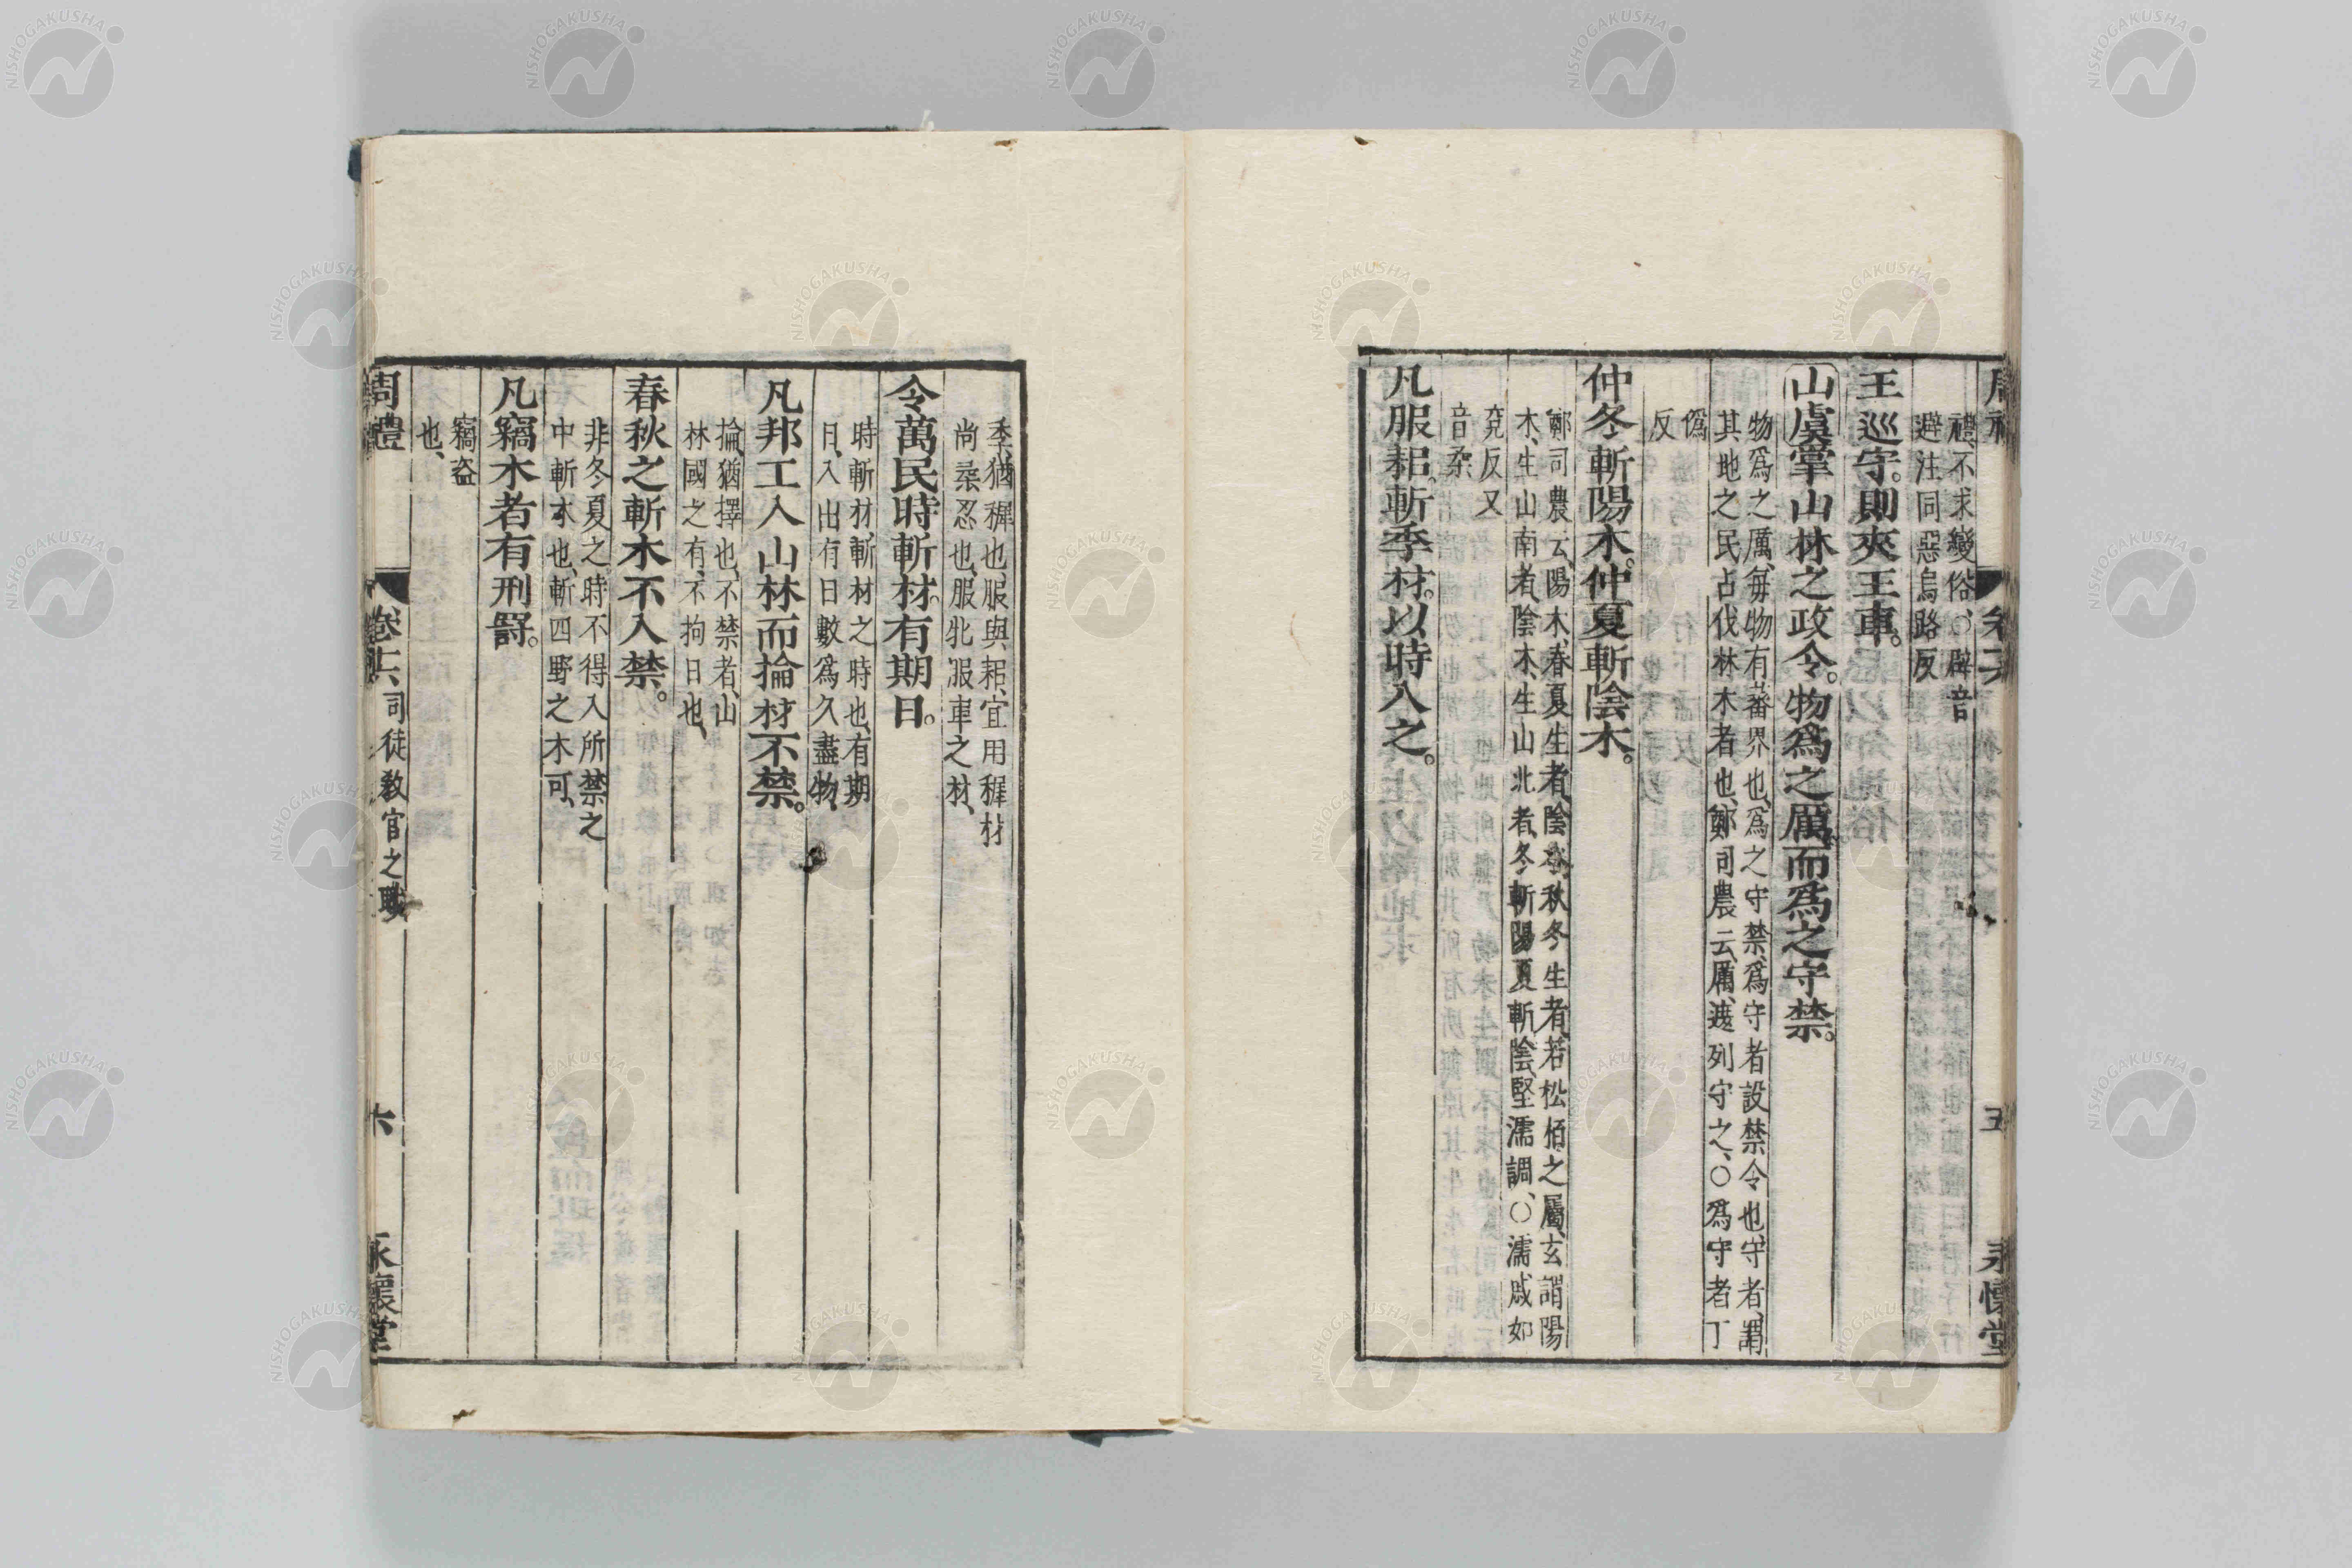 禮、不求變俗、○辟音
避注同惡烏路反
王巡守。則夾王車。
山虞掌山林之政令。物爲之厲。而爲之守禁。
物爲之厲、每物有蕃界也、爲之守禁、爲守者設禁令也、守者、謂
其地之民占伐林木者也、鄭司農云、厲、遮列守之、○爲守者丁
僞
反
仲冬斬陽木。仲夏斬陰木。
鄭司農云、陽木、春夏生者、陰木、秋冬生者、若松栢之屬、玄謂陽
木、生山南者、陰木、生山北者、冬斬陽夏斬陰、堅濡調、○濡戚如
兗反又
音柔
凡服耜。斬季材。以時入之。
永懷堂
五
季、猶稺也、服與耜、宜用稺材
尚柔忍也、服牝服車之材、
令萬民時斬材。有期日。
時斬材、斬材之時也、有期
日、入出有日數爲久盡物、
凡邦工入山林而掄材不禁。
掄、猶擇也、不禁者、山
林國之有、不拘日也、
春秋之斬木不入禁。
非冬夏之時不得入所禁之
中斬木也、斬四野之木可、
凡竊木者有刑罰。
竊盗
也、
周禮
卷十六 司徒教官之職
六
永懷堂
NISHOGAKUSHA